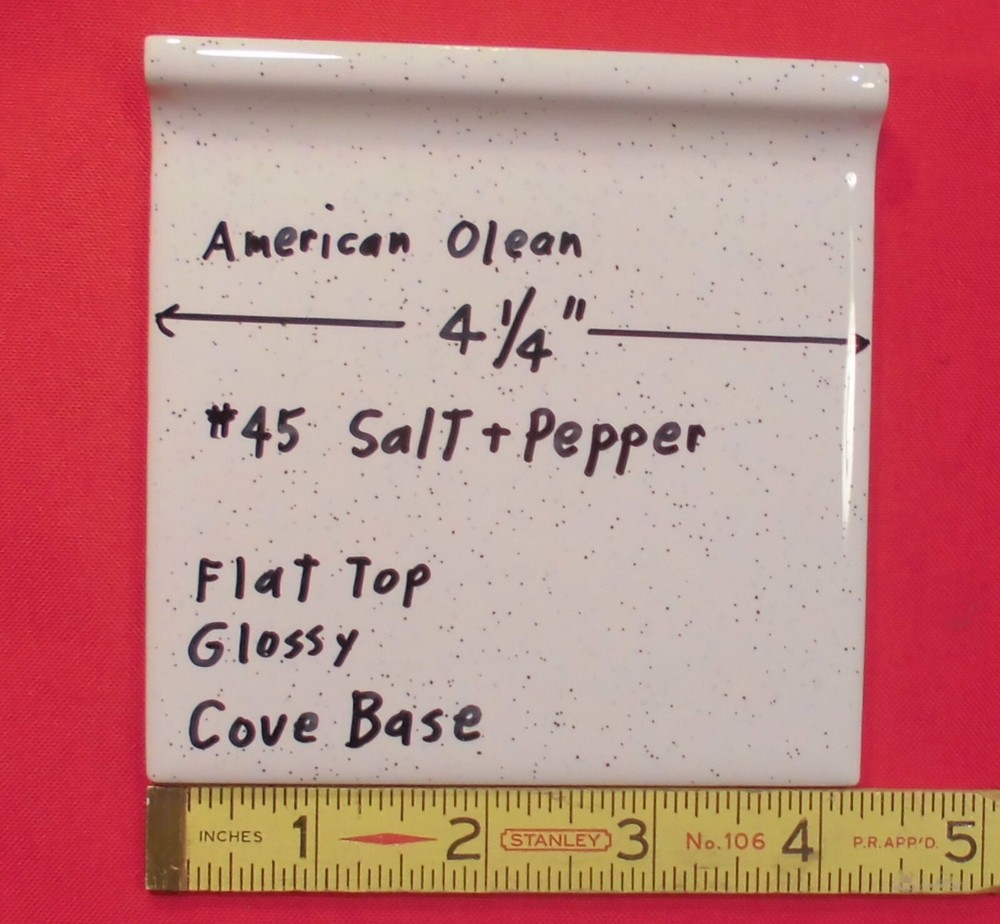 American Olean
4 1/4"
#45 Salt + Pepper
Flat Top
Glossy
Cove Base
INCHES 1 2 STANLEY 3 No.106 4 P.R.APP'D. 5